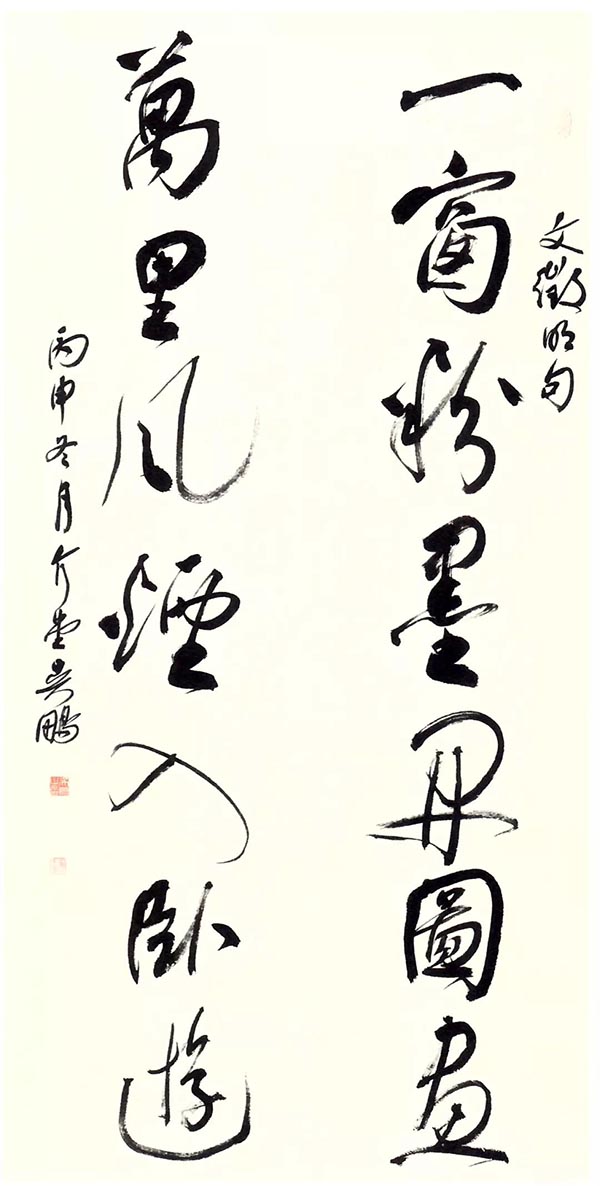 文徵明句
一窗粉墨開圖畫
萬里風煙入卧遊
丙申冬月介堂吳鵬